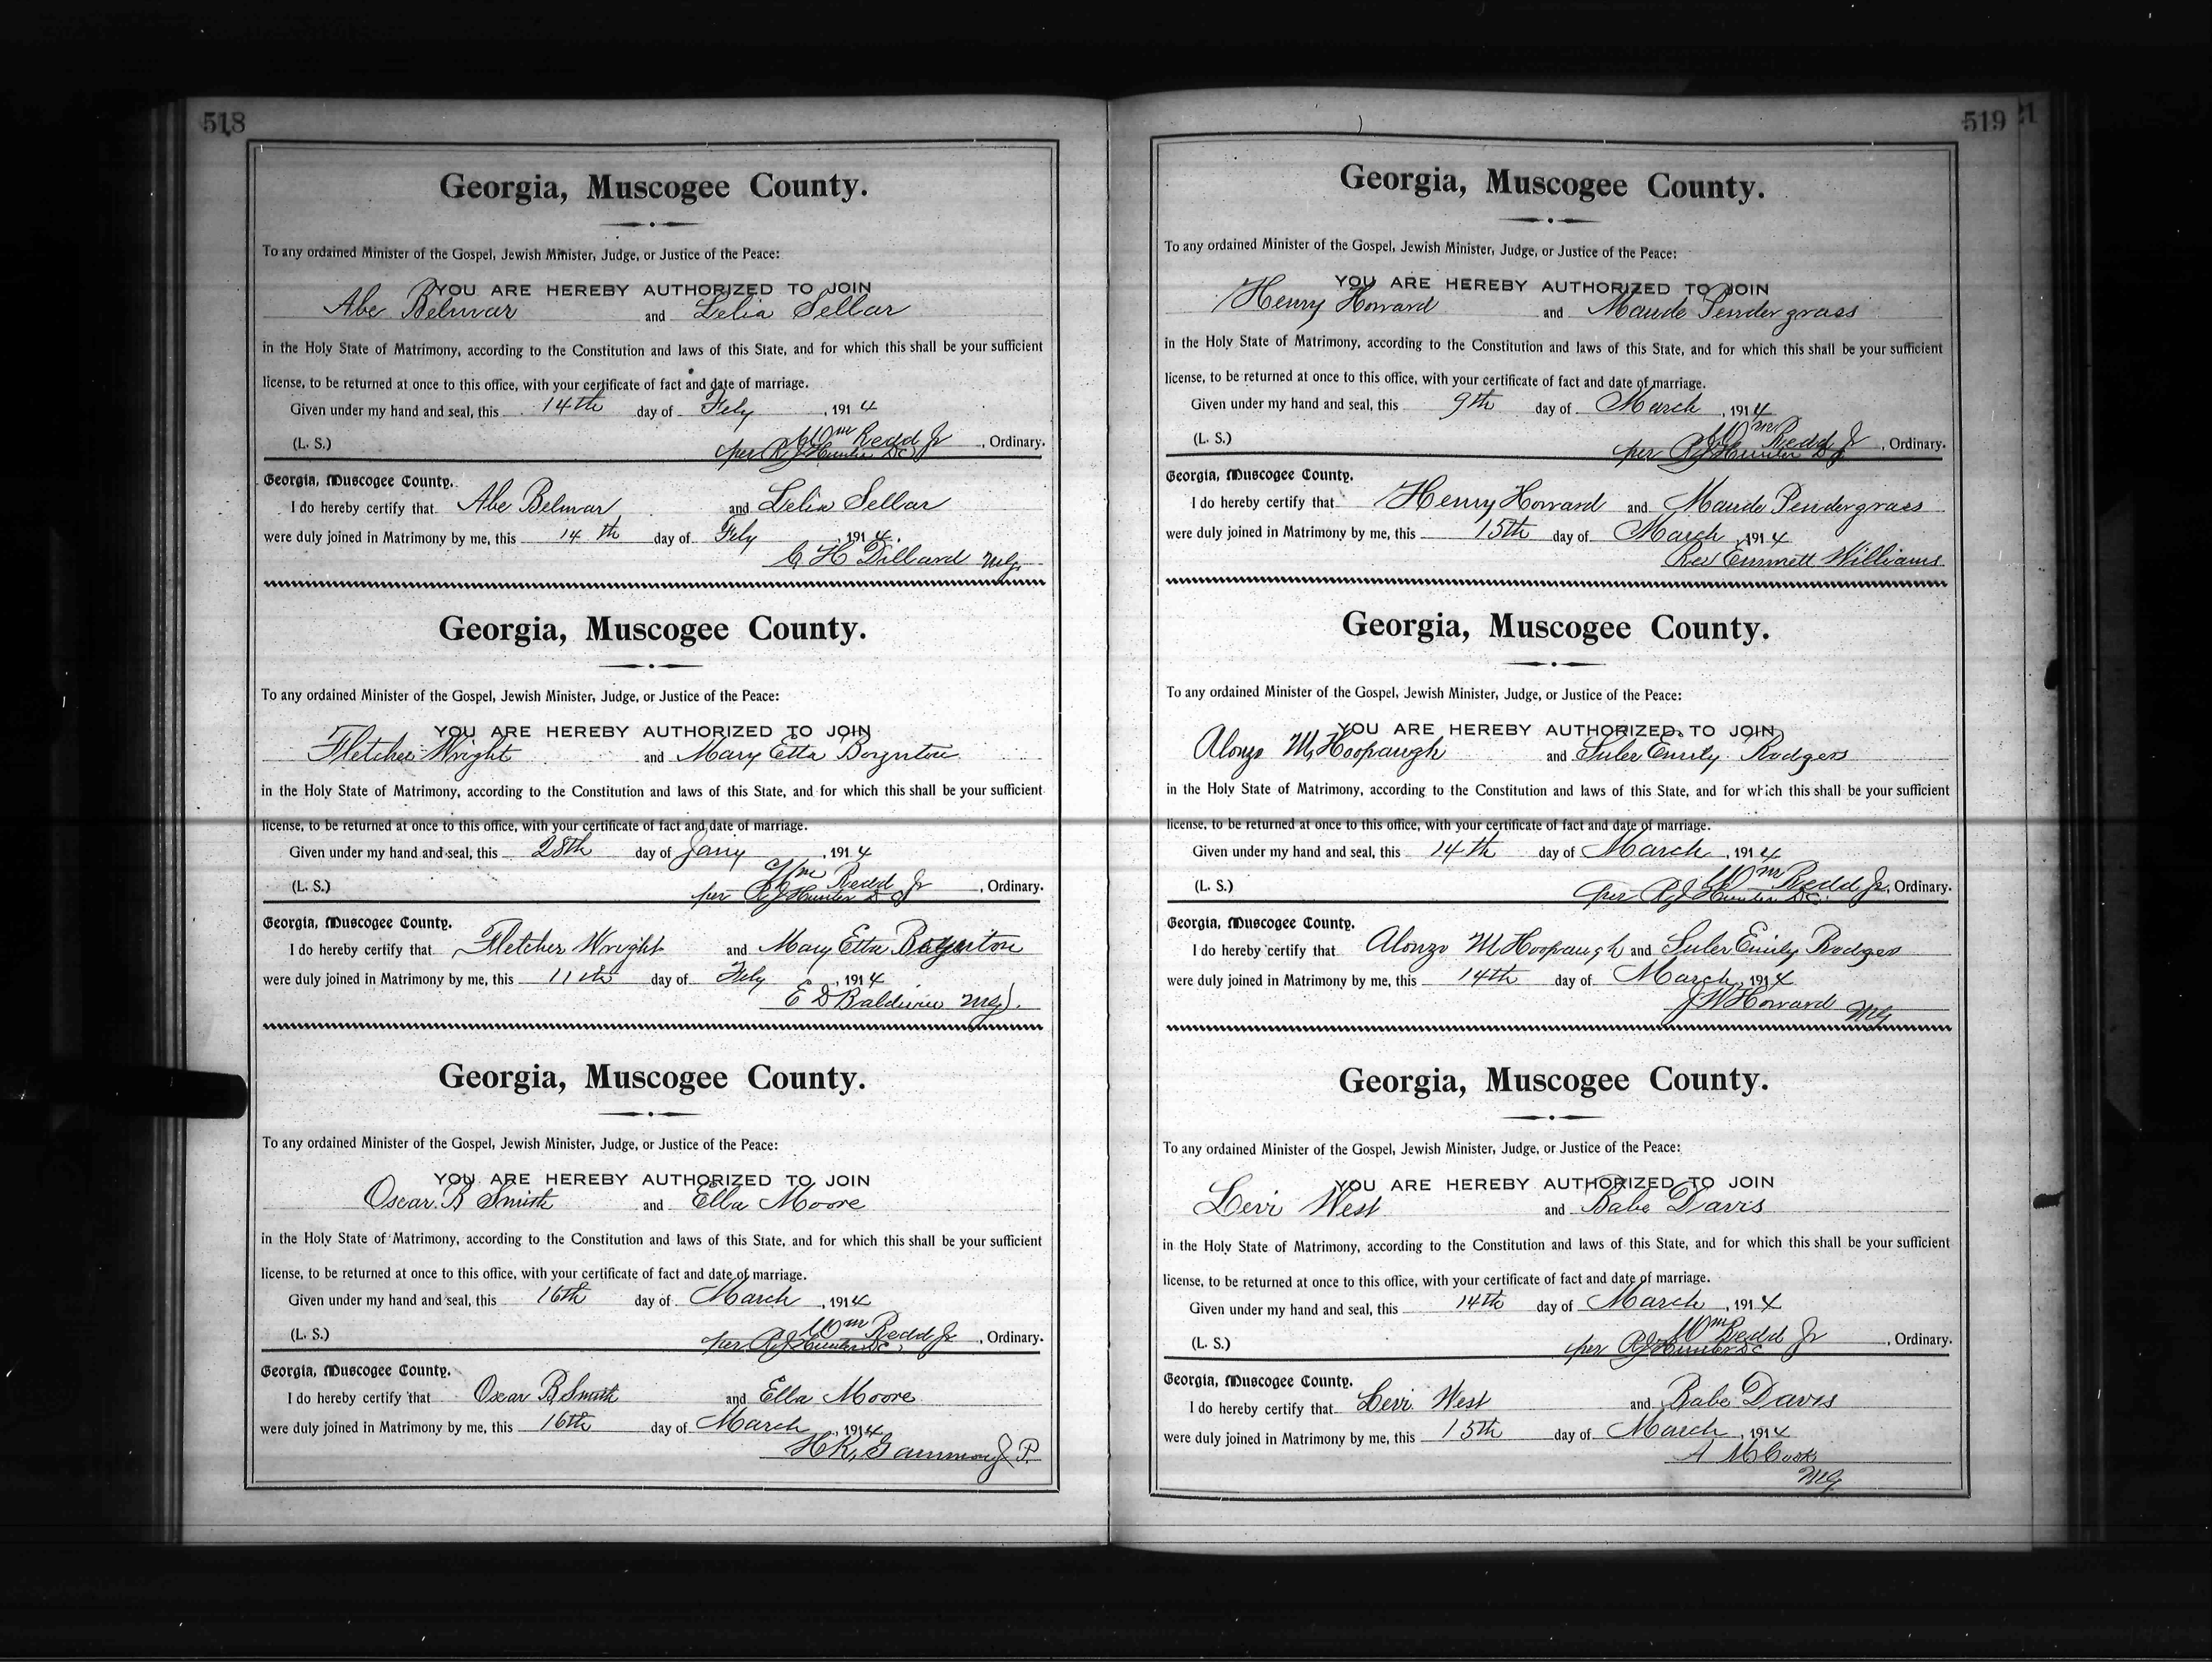 518
Georgia, Muscogee County.
To any ordained Minister of the Gospel, Jewish Minister, Judge, or Justice of the Peace:
YOU ARE HEREBY AUTHORIZED TO JOIN
Abe Belmar and Lelia Sellar
in the Holy State of Matrimony, according to the Constitution and laws of this State, and for which this shall be your sufficient
license, to be returned at once to this office, with your certificate of fact and date of marriage.
Given under my hand and seal, this 14th day of Feby, 1914
(L. S.) Wm Redd Jr, Ordinary.
per R J Hunter DC
Georgia, Muscogee County.
I do hereby certify that Abe Belmar and Lelia Sellar
were duly joined in Matrimony by me, this 14th day of Feby, 1914.
C H Dillard MG.
Georgia, Muscogee County.
To any ordained Minister of the Gospel, Jewish Minister, Judge, or Justice of the Peace:
YOU ARE HEREBY AUTHORIZED TO JOIN
Fletcher Wright and Mary Etta Boynton
in the Holy State of Matrimony, according to the Constitution and laws of this State, and for which this shall be your sufficient
license, to be returned at once to this office, with your certificate of fact and date of marriage.
Given under my hand and seal, this 28th day of Jany, 1914
(L. S.) Wm Redd Jr, Ordinary.
per R J Hunter DC
Georgia, Muscogee County.
I do hereby certify that Fletcher Wright and Mary Etta Boynton
were duly joined in Matrimony by me, this 11th day of Feby, 1914
E D Baldwin MG).
Georgia, Muscogee County.
To any ordained Minister of the Gospel, Jewish Minister, Judge, or Justice of the Peace:
YOU ARE HEREBY AUTHORIZED TO JOIN
Oscar B Smith and Ella Moore
in the Holy State of Matrimony, according to the Constitution and laws of this State, and for which this shall be your sufficient
license, to be returned at once to this office, with your certificate of fact and date of marriage.
Given under my hand and seal, this 16th day of March, 1914
(L. S.) Wm Redd Jr, Ordinary.
per R J Hunter DC,
Georgia, Muscogee County.
I do hereby certify that Oscar B Smith and Ella Moore
were duly joined in Matrimony by me, this 16th day of March, 1914
H R, Gammon J. P.
519
Georgia, Muscogee County.
To any ordained Minister of the Gospel, Jewish Minister, Judge, or Justice of the Peace:
YOU ARE HEREBY AUTHORIZED TO JOIN
Henry Howard and Maude Pendergrass
in the Holy State of Matrimony, according to the Constitution and laws of this State, and for which this shall be your sufficient
license, to be returned at once to this office, with your certificate of fact and date of marriage.
Given under my hand and seal, this 9th day of March, 1914
(L. S.) Wm Redd Jr, Ordinary.
per R J Hunter
Georgia, Muscogee County.
I do hereby certify that Henry Howard and Maude Pendergrass
were duly joined in Matrimony by me, this 15th day of March, 1914
Rev Emmett Williams
Georgia, Muscogee County.
To any ordained Minister of the Gospel, Jewish Minister, Judge, or Justice of the Peace:
YOU ARE HEREBY AUTHORIZED TO JOIN
Alonzo M, Hoopaugh and Suler Emily Rodgers
in the Holy State of Matrimony, according to the Constitution and laws of this State, and for which this shall be your sufficient
license, to be returned at once to this office, with your certificate of fact and date of marriage.
Given under my hand and seal, this 14th day of March, 1914
(L. S.) Wm Redd Jr, Ordinary.
per R J Hunter DC.
Georgia, Muscogee County.
I do hereby certify that Alonzo M Hoopaugh and Suler Emily Rodgers
were duly joined in Matrimony by me, this 14th day of March, 1914
J W Howard MG
Georgia, Muscogee County.
To any ordained Minister of the Gospel, Jewish Minister, Judge, or Justice of the Peace:
YOU ARE HEREBY AUTHORIZED TO JOIN
Levi West and Babe Davis
in the Holy State of Matrimony, according to the Constitution and laws of this State, and for which this shall be your sufficient
license, to be returned at once to this office, with your certificate of fact and date of marriage.
Given under my hand and seal, this 14th day of March, 1914
(L. S.) Wm Redd Jr, Ordinary.
per R J Hunter DC
Georgia, Muscogee County.
I do hereby certify that Levi West and Babe Davis
were duly joined in Matrimony by me, this 15th day of March, 1914
A M Cook
MG